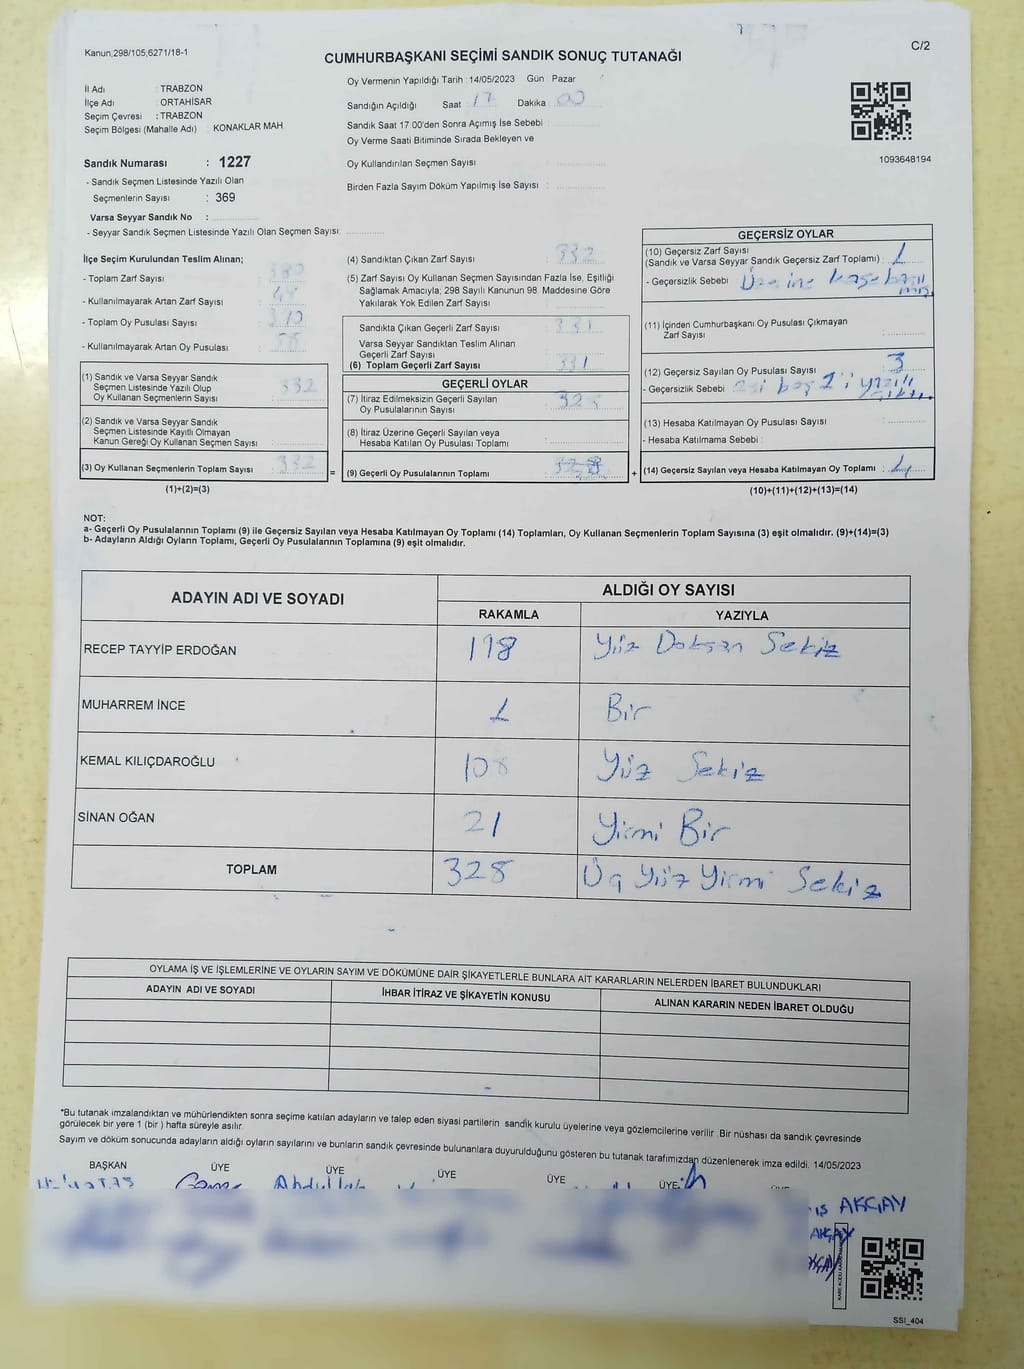 Kanun;298/105,6271/18-1
C/2
CUMHURBAŞKANI SEÇİMİ SANDIK SONUÇ TUTANAĞI
İl Adı : TRABZON
İlçe Adı : ORTAHİSAR
Seçim Çevresi : TRABZON
Seçim Bölgesi (Mahalle Adı) : KONAKLAR MAH
Sandık Numarası : 1227
- Sandık Seçmen Listesinde Yazılı Olan
Seçmenlerin Sayısı : 369
Varsa Seyyar Sandık No :
- Seyyar Sandık Seçmen Listesinde Yazılı Olan Seçmen Sayısı:
Oy Vermenin Yapıldığı Tarih :14/05/2023 Gün Pazar
Sandığın Açıldığı Saat 17 Dakika 00
Sandık Saat 17:00'den Sonra Açımış İse Sebebi :
Oy Verme Saati Bitiminde Sırada Bekleyen ve
Oy Kullandırılan Seçmen Sayısı :
Birden Fazla Sayım Döküm Yapılmış İse Sayısı :
1093648194
İlçe Seçim Kurulundan Teslim Alınan;
- Toplam Zarf Sayısı : 380
- Kullanılmayarak Artan Zarf Sayısı : 48
- Toplam Oy Pusulası Sayısı :
- Kullanılmayarak Artan Oy Pusulası :
(1) Sandık ve Varsa Seyyar Sandık
Seçmen Listesinde Yazılı Olup
Oy Kullanan Seçmenlerin Sayısı : 332
(2) Sandık ve Varsa Seyyar Sandık
Seçmen Listesinde Kayıtlı Olmayan
Kanun Gereği Oy Kullanan Seçmen Sayısı :
(3) Oy Kullanan Seçmenlerin Toplam Sayısı : 332
(1)+(2)=(3)
=
(4) Sandıktan Çıkan Zarf Sayısı : 332
(5) Zarf Sayısı Oy Kullanan Seçmen Sayısından Fazla İse, Eşitliği
Sağlamak Amacıyla; 298 Sayılı Kanunun 98. Maddesine Göre
Yakılarak Yok Edilen Zarf Sayısı :
Sandıkta Çıkan Geçerli Zarf Sayısı : 331
Varsa Seyyar Sandıktan Teslim Alınan
Geçerli Zarf Sayısı :
(6) Toplam Geçerli Zarf Sayısı : 331
GEÇERLİ OYLAR
(7) İtiraz Edilmeksizin Geçerli Sayılan
Oy Pusulalarının Sayısı : 328
(8) İtiraz Üzerine Geçerli Sayılan veya
Hesaba Katılan Oy Pusulası Toplamı :
(9) Geçerli Oy Pusulalarının Toplamı : 328
+
GEÇERSİZ OYLAR
(10) Geçersiz Zarf Sayısı
(Sandık ve Varsa Seyyar Sandık Geçersiz Zarf Toplamı) : 1
- Geçersizlik Sebebi : Üzerine kaşe basılmış
(11) İçinden Cumhurbaşkanı Oy Pusulası Çıkmayan
Zarf Sayısı :
(12) Geçersiz Sayılan Oy Pusulası Sayısı : 3
- Geçersizlik Sebebi : boş 1'i yazılı
(13) Hesaba Katılmayan Oy Pusulası Sayısı :
- Hesaba Katılmama Sebebi :
(14) Geçersiz Sayılan veya Hesaba Katılmayan Oy Toplamı : 4
(10)+(11)+(12)+(13)=(14)
NOT:
a- Geçerli Oy Pusulalarının Toplamı (9) ile Geçersiz Sayılan veya Hesaba Katılmayan Oy Toplamı (14) Toplamları, Oy Kullanan Seçmenlerin Toplam Sayısına (3) eşit olmalıdır. (9)+(14)=(3)
b- Adayların Aldığı Oyların Toplamı, Geçerli Oy Pusulalarının Toplamına (9) eşit olmalıdır.
ADAYIN ADI VE SOYADI ALDIĞI OY SAYISI
RAKAMLA YAZIYLA
RECEP TAYYİP ERDOĞAN 198 Yüz Doksan Sekiz
MUHARREM İNCE 1 Bir
KEMAL KILIÇDAROĞLU 108 Yüz Sekiz
SİNAN OĞAN 21 Yirmi Bir
TOPLAM 328 Üç Yüz Yirmi Sekiz
OYLAMA İŞ VE İŞLEMLERİNE VE OYLARIN SAYIM VE DÖKÜMÜNE DAİR ŞİKAYETLERLE BUNLARA AİT KARARLARIN NELERDEN İBARET BULUNDUKLARI
ADAYIN ADI VE SOYADI İHBAR İTİRAZ VE ŞİKAYETİN KONUSU ALINAN KARARIN NEDEN İBARET OLDUĞU
*Bu tutanak imzalandıktan ve mühürlendikten sonra seçime katılan adayların ve talep eden siyasi partilerin sandık kurulu üyelerine veya gözlemcilerine verilir. Bir nüshası da sandık çevresinde
görülecek bir yere 1 (bir) hafta süreyle asılır.
Sayım ve döküm sonucunda adayların aldığı oyların sayılarını ve bunların sandık çevresinde bulunanlara duyurulduğunu gösteren bu tutanak tarafımızdan düzenlenerek imza edildi. 14/05/2023
BAŞKAN ÜYE ÜYE ÜYE ÜYE ÜYE
Abdullah
AKÇAY
AKÇAY
SSI_404